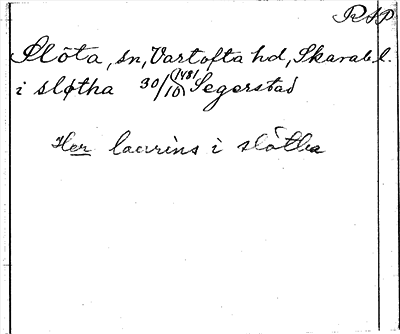 RAP
Slöta, sn, Vartofta hd, Skarab. l.
i sløtha 30/10 1481 Segerstad
Her laurins i slötha